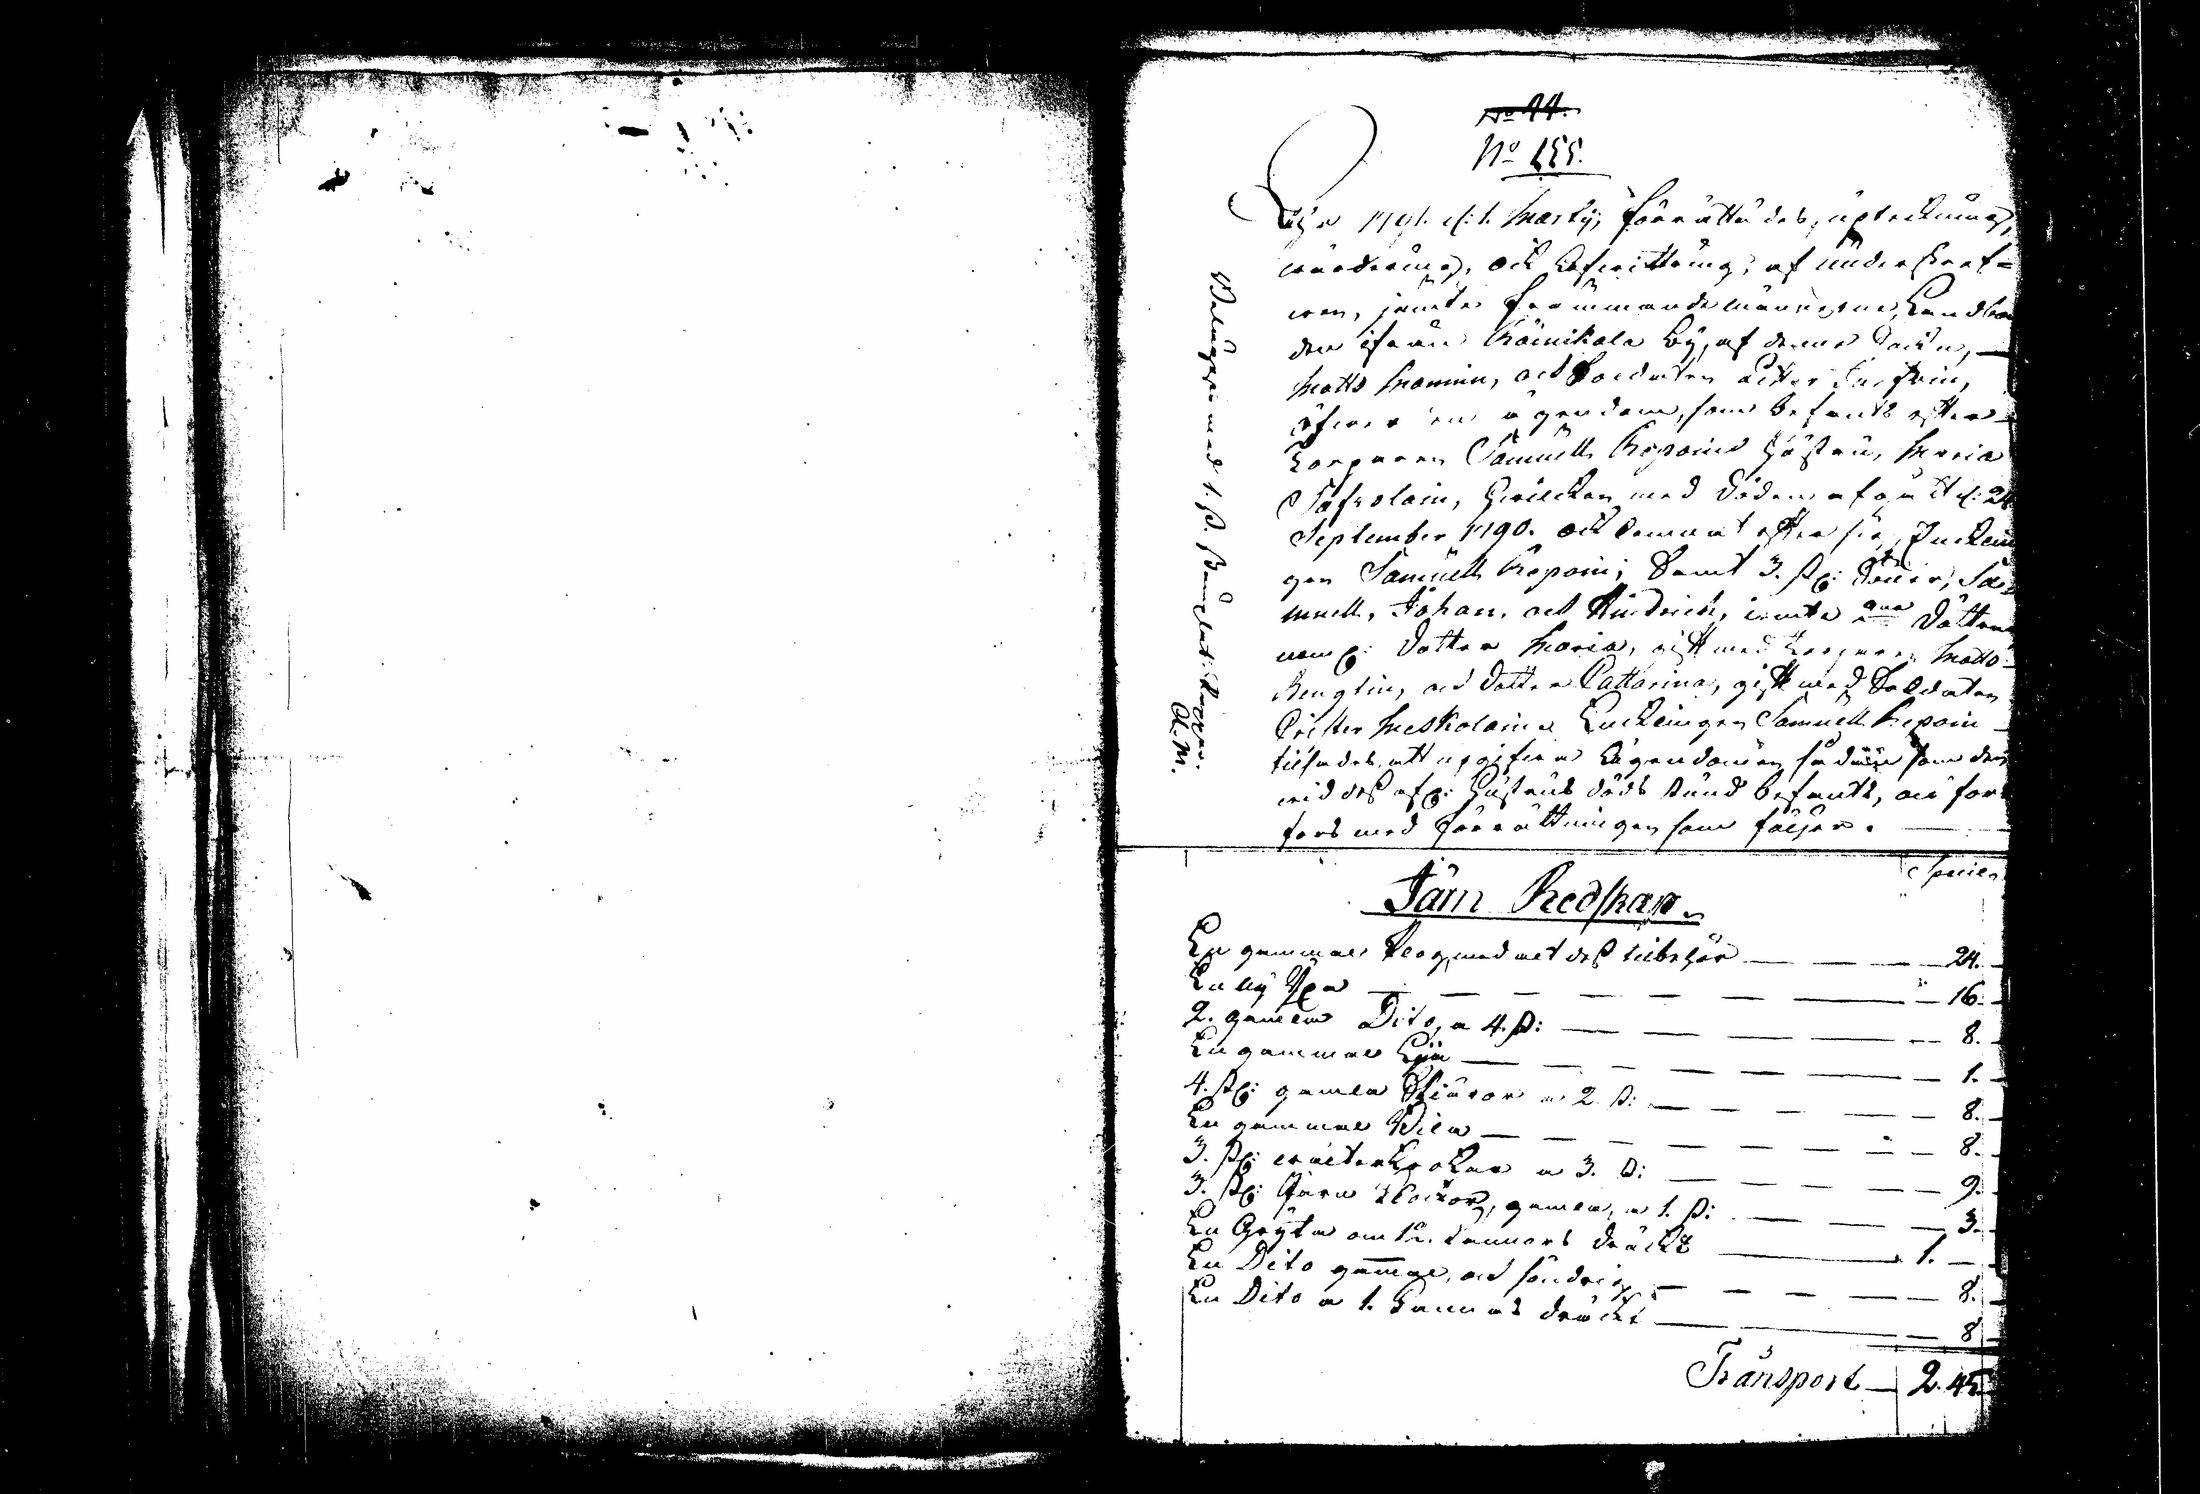 No 44.
No 155.
Åhr 1791. d: 1. Martij, förrättades, upteckning,
värdering, och Afwittring, af underskref-
ven, jämte frammande männerne, Landbon
den ifrån Kämikala By, af denne Sockn,
Matts Mamin, och Soldaten Petter
öfver en ägendom, som befants efter
Torparen Samuell Repoins Hustru, Maria
Tafvolain, hvilcken med döden afgått d: 24
September 1790. och lemnat efter sig, Enckein
gen Samuell Repoin; Samt 3. st: Söner, Sa-
muell, Johan, och Hindrich, jemte två döttrar
neml: dotter Maria, gift med Torparen Matts
Bengtin, och dotter Cattarina, gift med Soldaten
Petter Meskolain. Enckeingen Samuell Repoin
tillsades att upgifva Egendomen sådan som den
vid dess afl: Hustrus döds stund befants, och fort
fors med förrättningen som följer.
Bewillningen med 1. s. Banco
A. M.
Specier
Järn Redskap.
En gammal Plog, med alt dess tilbehör — 24.
En ny Yxa — 16.
2. gamla Dito, a 4. s: — 8.
En gammal — 1.
4. st: gamla Skiäror a 2 s: — 8.
En gammal Bila — 8.
3. st: a 3. s: — 9.
3. st: Järn gamla, a 1. s: — 3.
En Gryta om 12. kannors dräckt — 1. —
En Dito gammal, och söndrig — 8.
En Dito a 1. kannas dräckt — 8
Transport — 2. 45